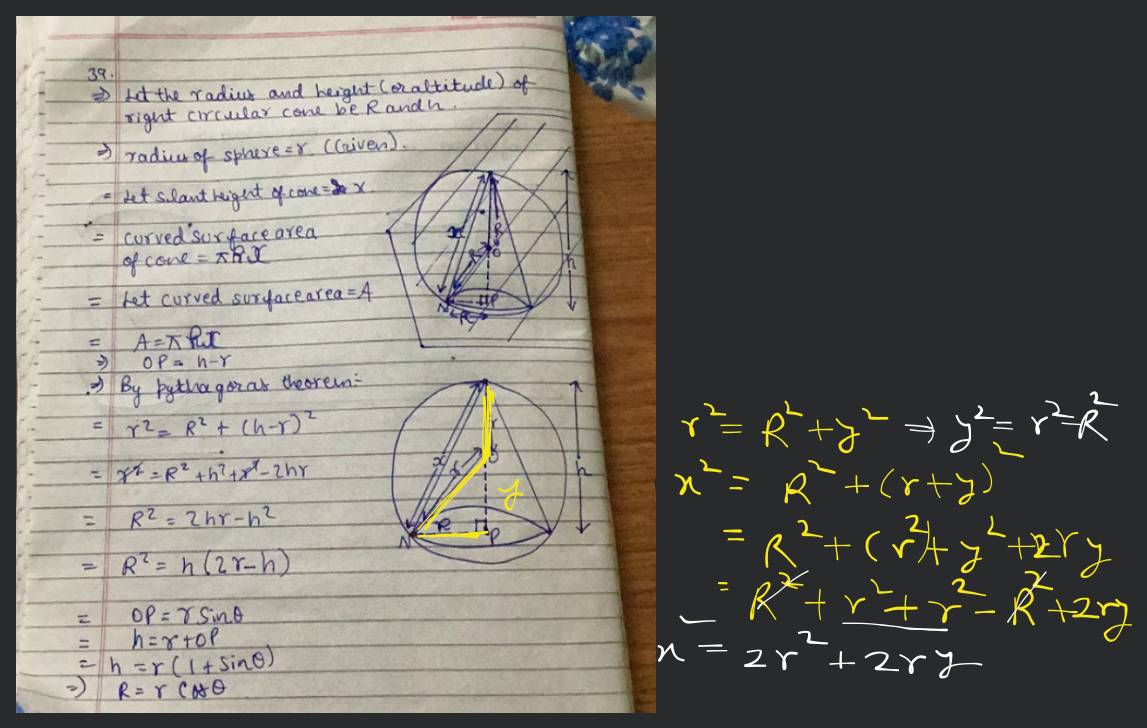 39.
⇒ Let the radius and height (or altitude) of
right circular cone be R and h.
⇒ radius of sphere = r. (Given).
= Let slant height of cone = x
= curved surface area
of cone = πRx
= Let curved surface area = A
= A = πRx
⇒ OP = h-r
⇒ By pythagoras theorem:-
= r² = R² + (h-r)²
= r² = R² + h² + r² - 2hr
= R² = 2hr - h²
= R² = h(2r-h)
= OP = r Sinθ
= h = r + OP
= h = r(1 + Sinθ)
⇒ R = r Cosθ
x
R
O
h
N
R
P
x
r
r
O
h
y
N
R
P
r² = R² + y² ⇒ y² = r² - R²
x² = R² + (r+y)²
= R² + (r²) + y² + 2ry
= R² + r² + r² - R² + 2ry
x² = 2r² + 2ry